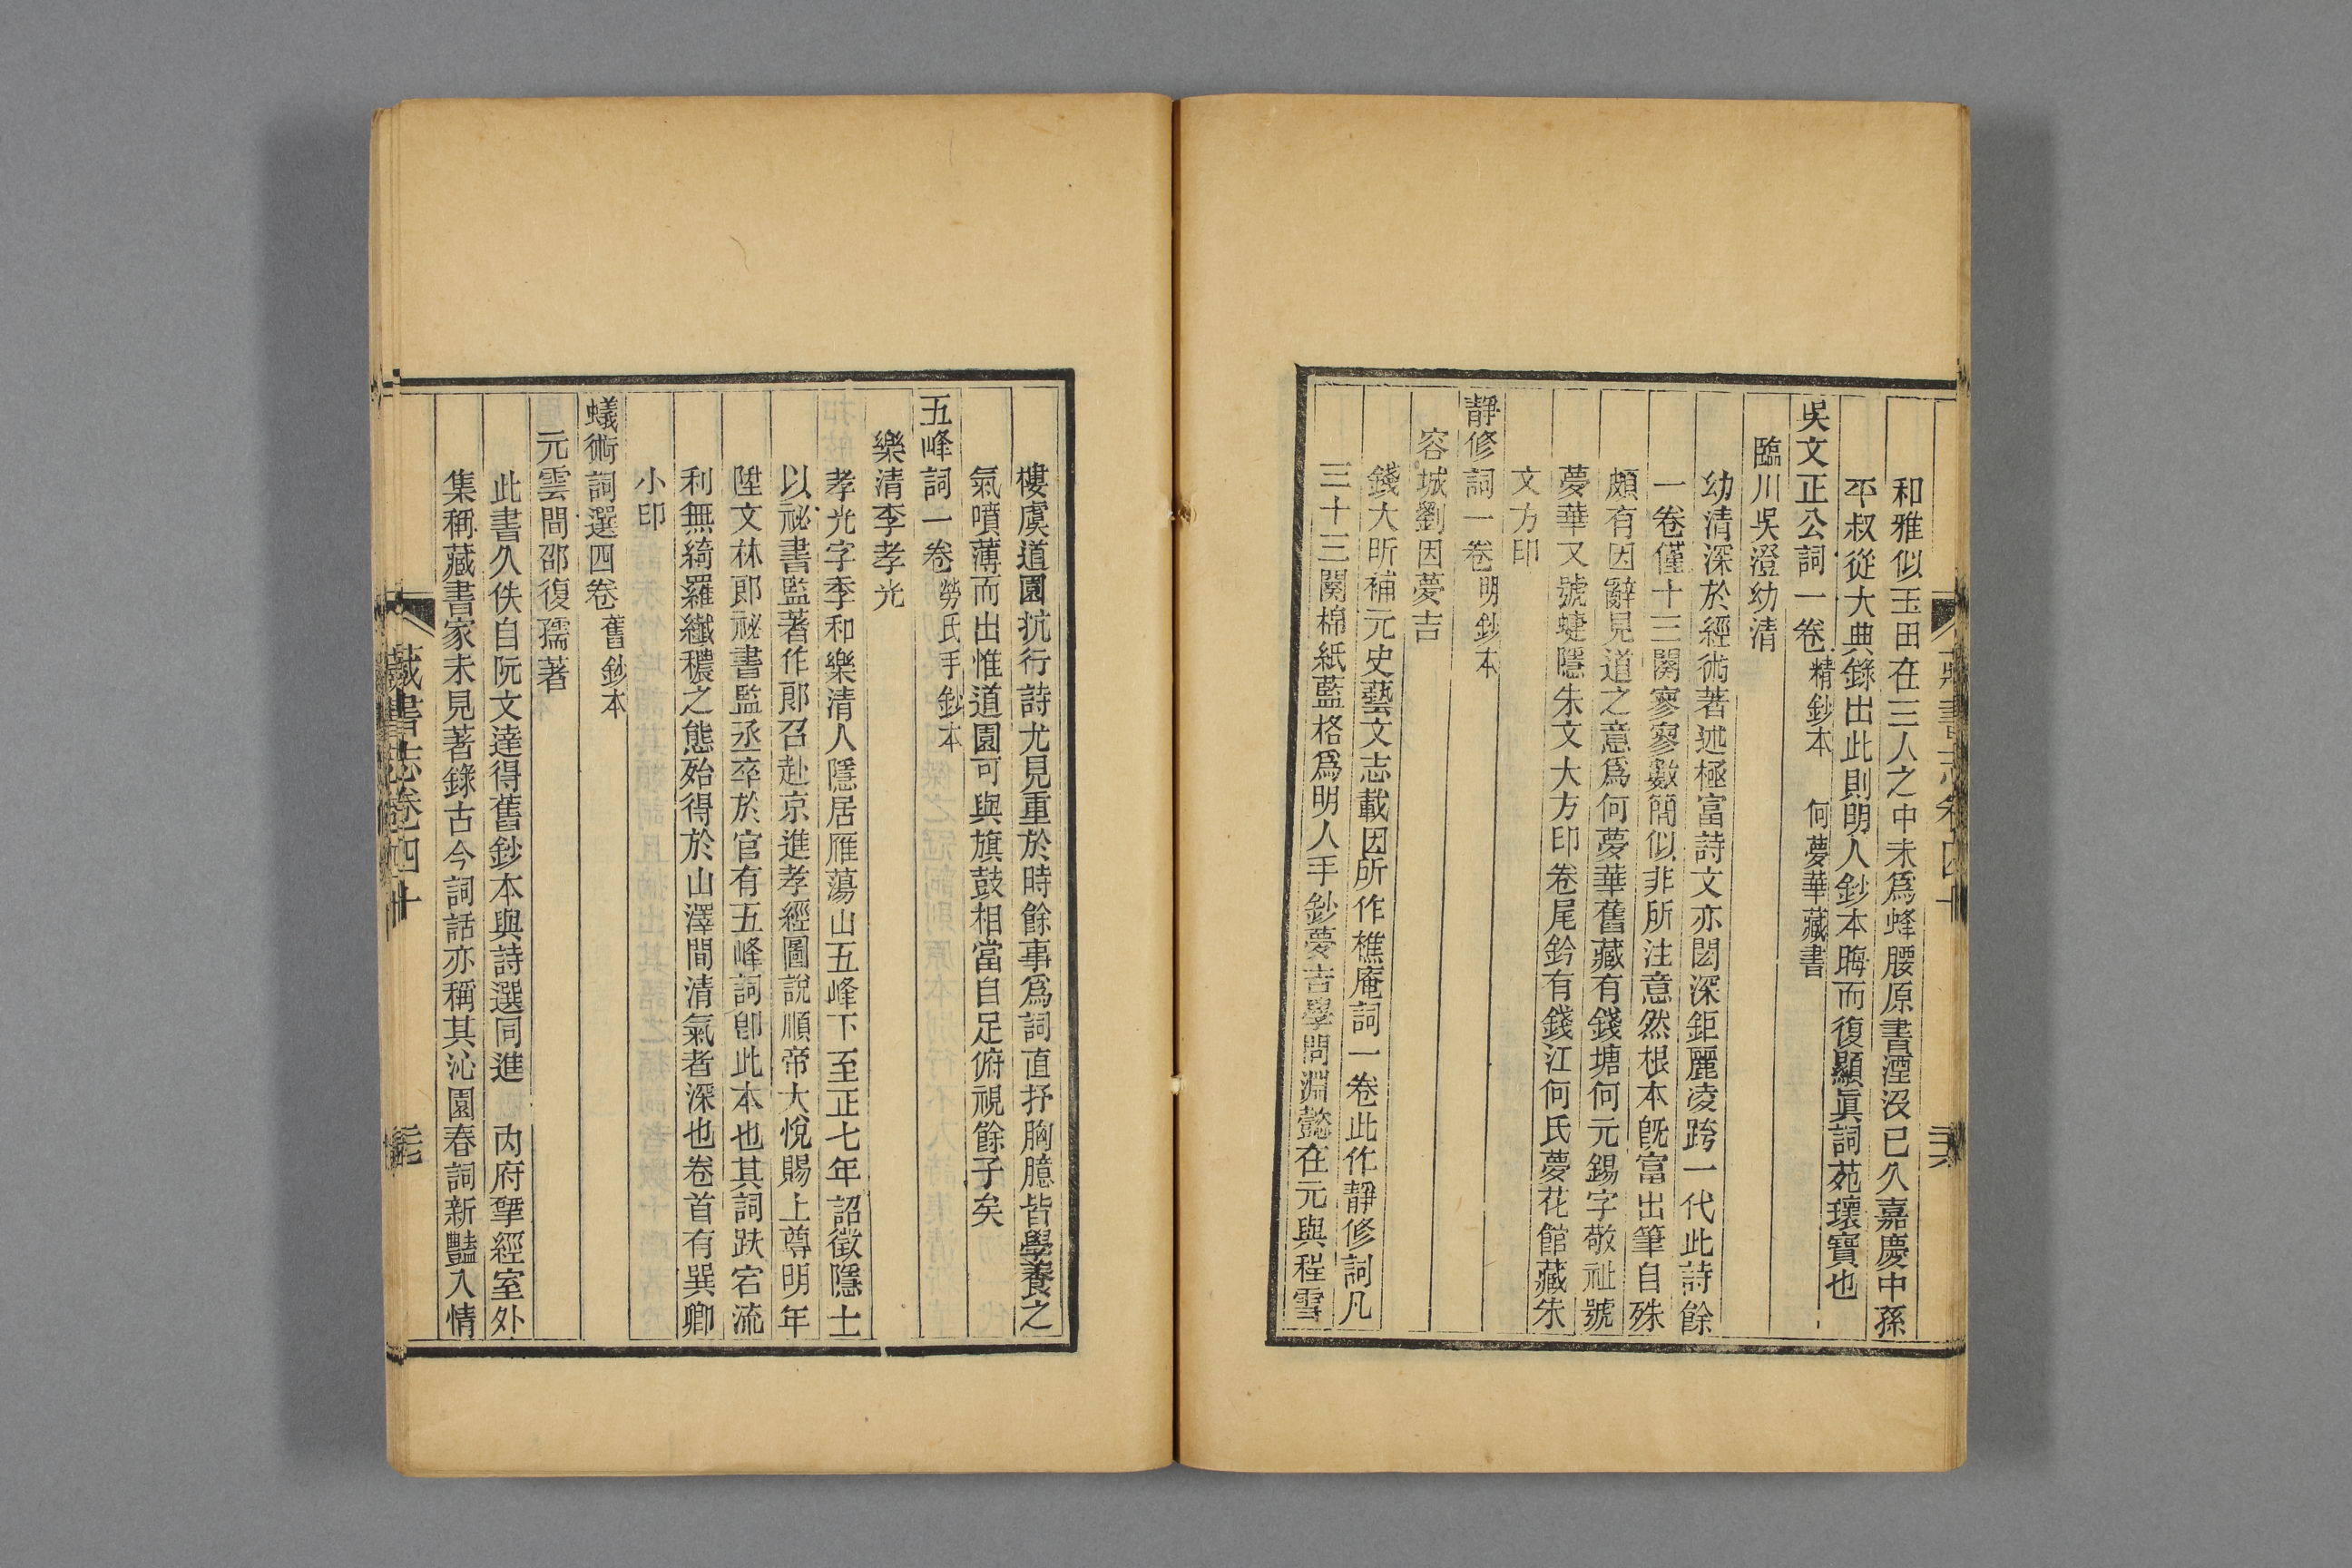 和雅似玉田在三人之中未爲蜂腰原書湮沒已久嘉慶中孫
平叔從大典錄出此則明人鈔本晦而復顯眞詞苑瓌寶也
吳文正公詞一卷 精鈔本 何夢華藏書
臨川吳澄幼清
幼清深於經術著述極富詩文亦閎深鉅麗凌跨一代此詩餘
一卷僅十三闋寥寥數簡似非所注意然根本旣富出筆自殊
頗有因辭見道之意爲何夢華舊藏有錢塘何元錫字敬祉號
夢華又號蜨隱朱文大方印卷尾鈐有錢江何氏夢花館藏朱
文方印
靜修詞一卷 明鈔本
容城劉因夢吉
錢大昕補元史藝文志載因所作樵庵詞一卷此作靜修詞凡
三十三闋棉紙藍格爲明人手鈔夢吉學問淵懿在元與程雪
藏書志卷四十 三六
樓虞道園抗行詩尤見重於時餘事爲詞直抒胸臆皆學養之
氣噴薄而出惟道園可與旗鼓相當自足俯視餘子矣
五峰詞一卷 勞氏手鈔本
樂清李孝光
孝光字季和樂清人隱居雁蕩山五峰下至正七年詔徵隱士
以祕書監著作郎召赴京進孝經圖說順帝大悅賜上尊明年
陞文林郎祕書監丞卒於官有五峰詞卽此本也其詞趺宕流
利無綺羅纖穠之態殆得於山澤間清氣者深也卷首有巽卿
小印
蟻術詞選四卷 舊鈔本
元雲間邵復孺著
此書久佚自阮文達得舊鈔本與詩選同進 內府揅經室外
集稱藏書家未見著錄古今詞話亦稱其沁園春詞新豔入情
藏書志卷四十 三七